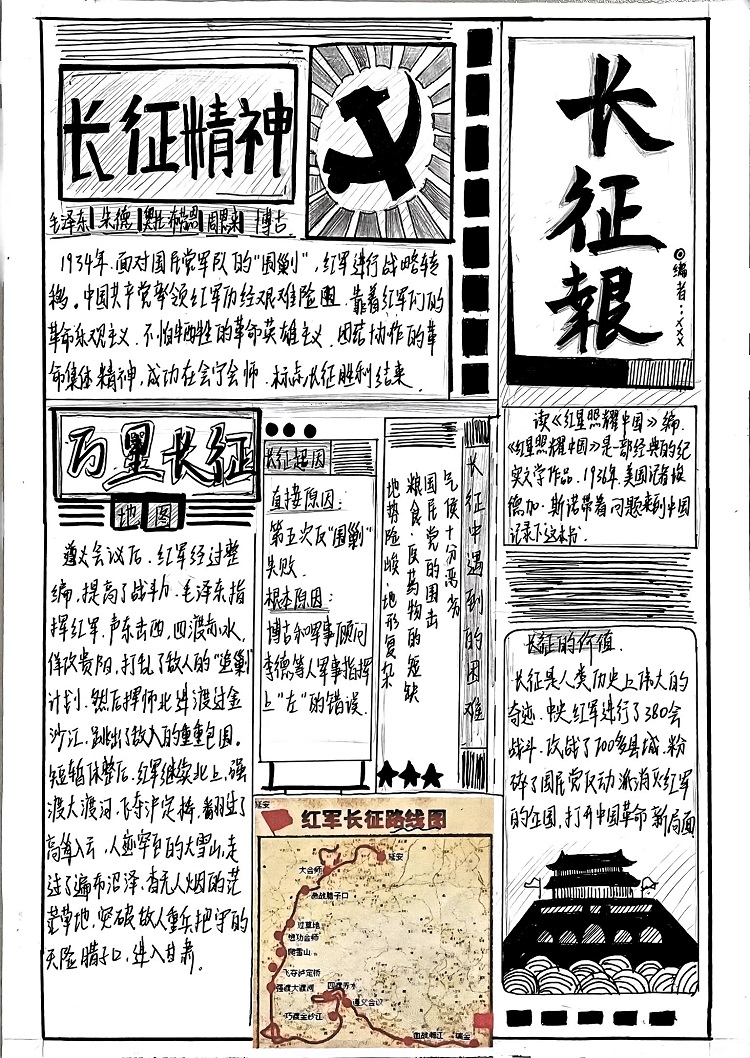 长征精神
毛泽东 朱德 奥托·布劳恩 周恩来 博古
1934年,面对国民党军队的"围剿",红军进行战略转
移。中国共产党率领红军历经艰难险阻,靠着红军们的
革命乐观主义、不怕牺牲的革命英雄主义、团结协作的革
命集体精神,成功在会宁会师,标志长征胜利结束
长征報
编者:×××
读《红星照耀中国》编.
《红星照耀中国》是一部经典的纪
实文学作品.1936年,美国记者埃
德加·斯诺带着问题来到中国
记录下这本书.
万里长征
地图
遵义会议后,红军经过整
编,提高了战斗力.毛泽东指
挥红军,声东击西,四渡赤水,
佯攻贵阳,打乱了敌人的"追剿"
计划.然后挥师北进渡过金
沙江,跳出了敌人的重重包围。
短暂休整后,红军继续北上,强
渡大渡河,飞夺泸定桥,翻过了
高耸入云、人迹罕至的大雪山,走
过了遍布沼泽、杳无人烟的茫
茫草地,突破敌人重兵把守的
天险腊子口,进入甘肃。
长征起因
直接原因:
第五次反"围剿"
失败.
根本原因:
博古和军事顾问
李德等人军事指挥
上"左"的错误.
长征中遇到的困难
气候十分恶劣
国民党的围击
粮食·医药物的短缺
地势险峻·地形复杂
长征的价值.
长征是人类历史上伟大的
奇迹.中央红军进行了380余
战斗.攻战了700多县城.粉
碎了国民党反动派消灭红军
的企图,打开中国革命新局面
延安
红军长征路线图
延安
大会师
激战腊子口
过草地
懋功会师
爬雪山
飞夺泸定桥
强渡大渡河
四渡赤水
遵义会议
巧渡金沙江
血战湘江
瑞金